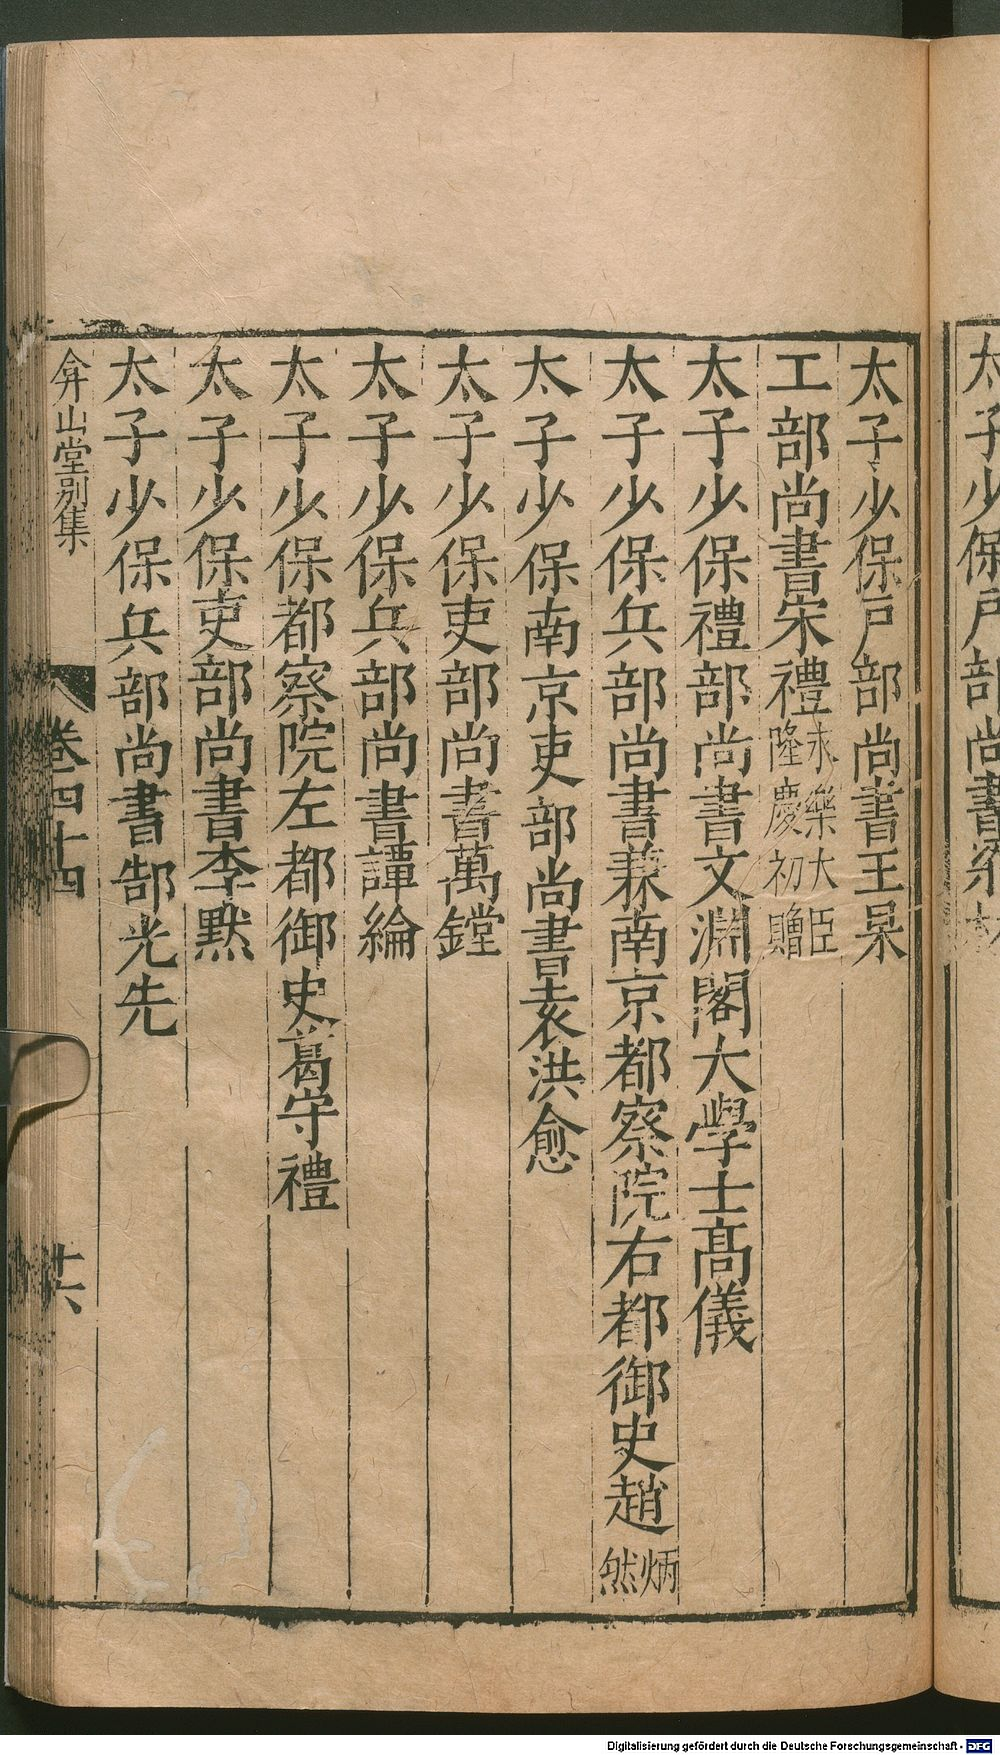 太子少保戶部尚書
太子少保戶部尚書王杲
工部尚書宋禮永樂大臣隆慶初贈
太子少保禮部尚書文淵閣大學士高儀
太子少保兵部尚書兼南京都察院右都御史趙炳然
太子少保南京吏部尚書袁洪愈
太子少保吏部尚書萬鏜
太子少保兵部尚書譚綸
太子少保都察院左都御史葛守禮
太子少保吏部尚書李默
太子少保兵部尚書郜光先
弇山堂別集 卷四十四 十六
Digitalisierung gefördert durch die Deutsche Forschungsgemeinschaft - DFG